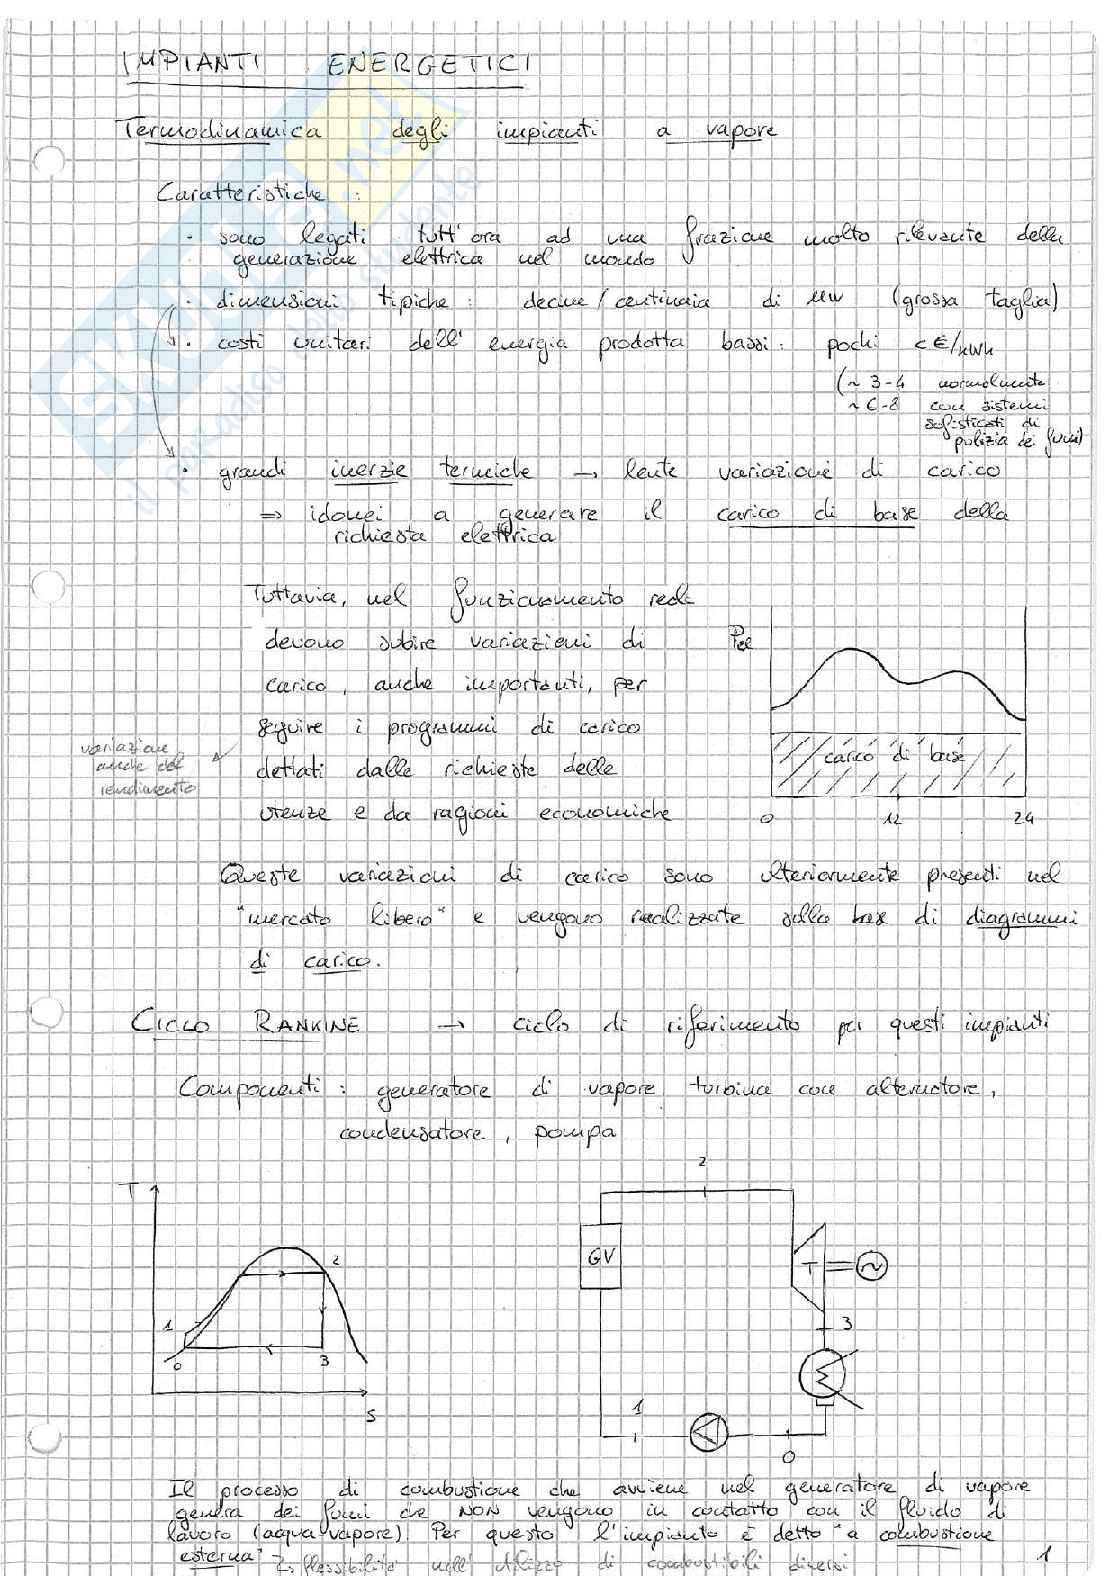 IMPIANTI ENERGETICI
Termodinamica degli impianti a vapore
Caratteristiche :
· sono legati tutt'ora ad una frazione molto rilevante della
generazione elettrica nel mondo
· dimensioni tipiche : decine/centinaia di MW (grossa taglia)
· costi unitari dell'energia prodotta bassi : pochi c€/kWh
(~ 3-4 normalmente
~ 6-8 con sistemi
sofisticati di
pulizia dei fumi)
· grandi inerzie termiche → lente variazioni di carico
⇒ idonei a generare il carico di base della
richiesta elettrica
Tuttavia, nel funzionamento reale
devono subire variazioni di
carico, anche importanti, per
seguire i programmi di carico
dettati dalle richieste delle
utenze e da ragioni economiche
variazione
anche del
rendimento
Pel
carico di base
0 12 24
Queste variazioni di carico sono ulteriormente presenti nel
"mercato libero" e vengono realizzate sulla base di diagrammi
di carico.
CICLO RANKINE → ciclo di riferimento per questi impianti
Componenti : generatore di vapore turbina con alternatore,
condensatore, pompa
T
2
1
0
3
S
2
GV
T
3
1
0
Il processo di combustione che avviene nel generatore di vapore
genera dei fumi che NON vengono in contatto con il fluido di
lavoro (acqua/vapore). Per questo l'impianto è detto "a combustione
esterna" flessibilità nell'utilizzo di combustibili diversi
1
SKUOLA.net
il paradiso dello studente